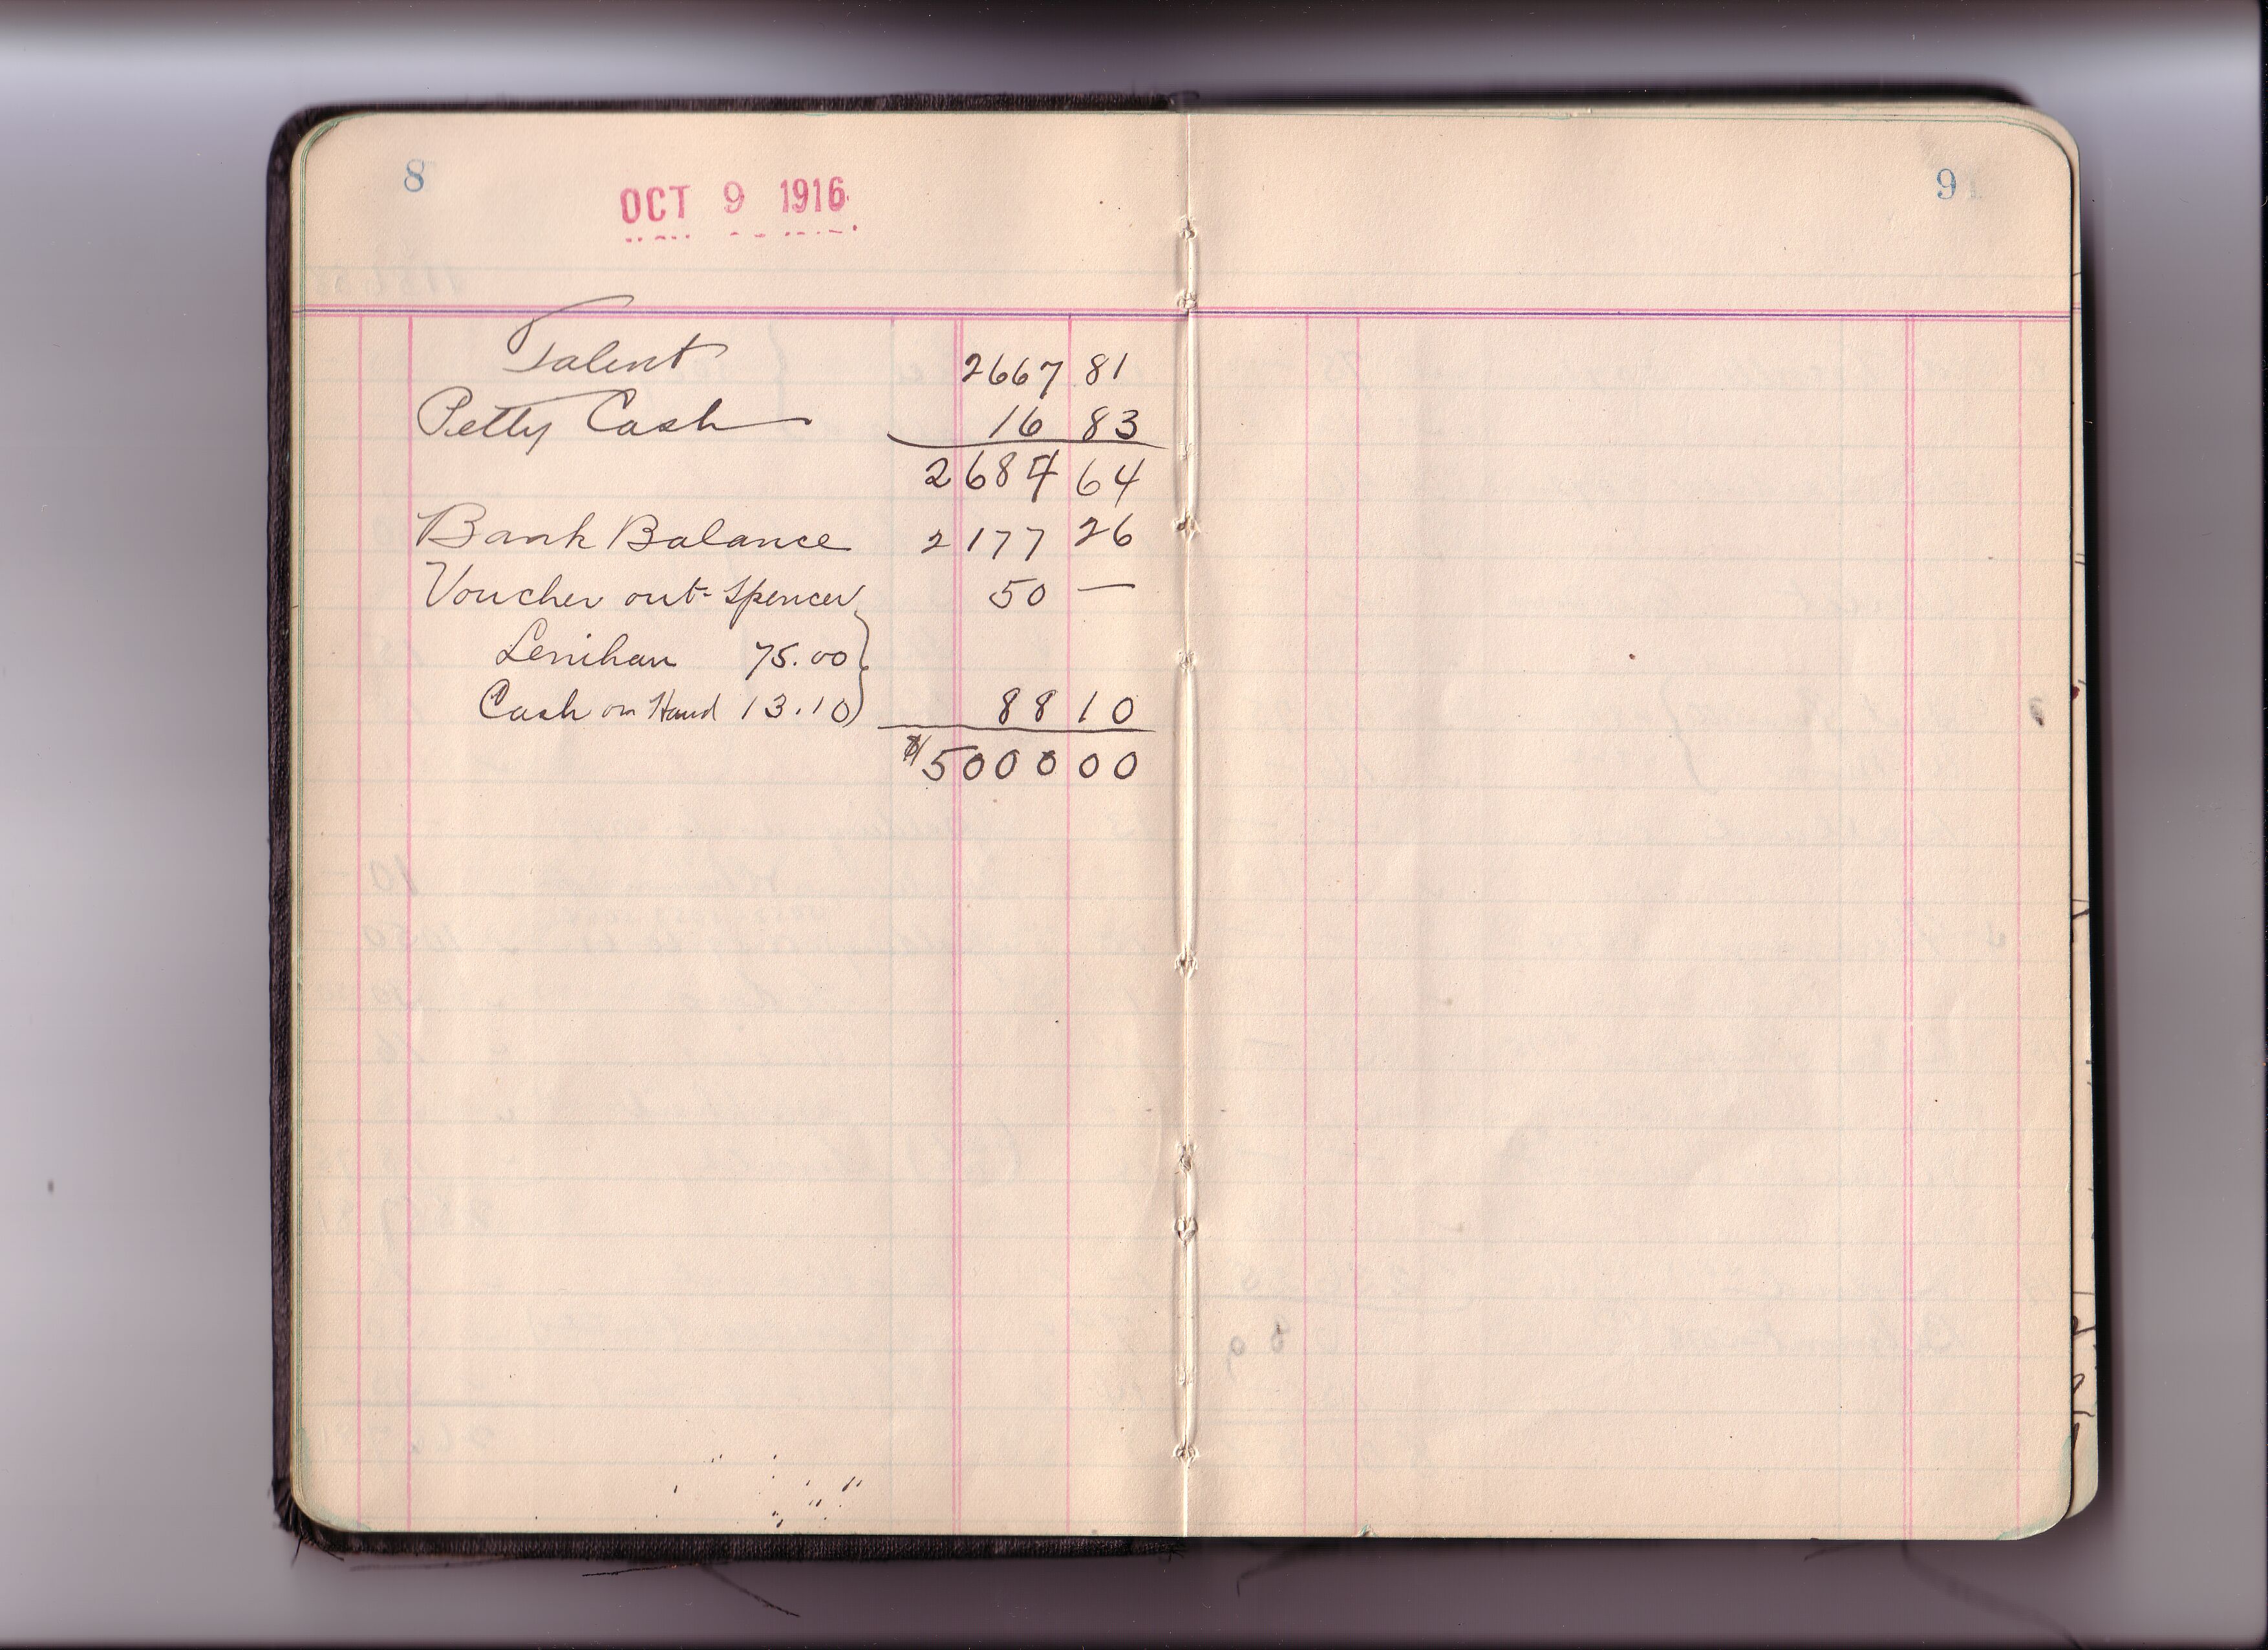 8
OCT 9 1916
Talent 2667 81
Petty Cash 16 83
2684 64
Bank Balance 2177 26
Voucher out - Spencer 50 —
Lenihan 75.00
Cash on Hand 13.10 88 10
$5000 00
9